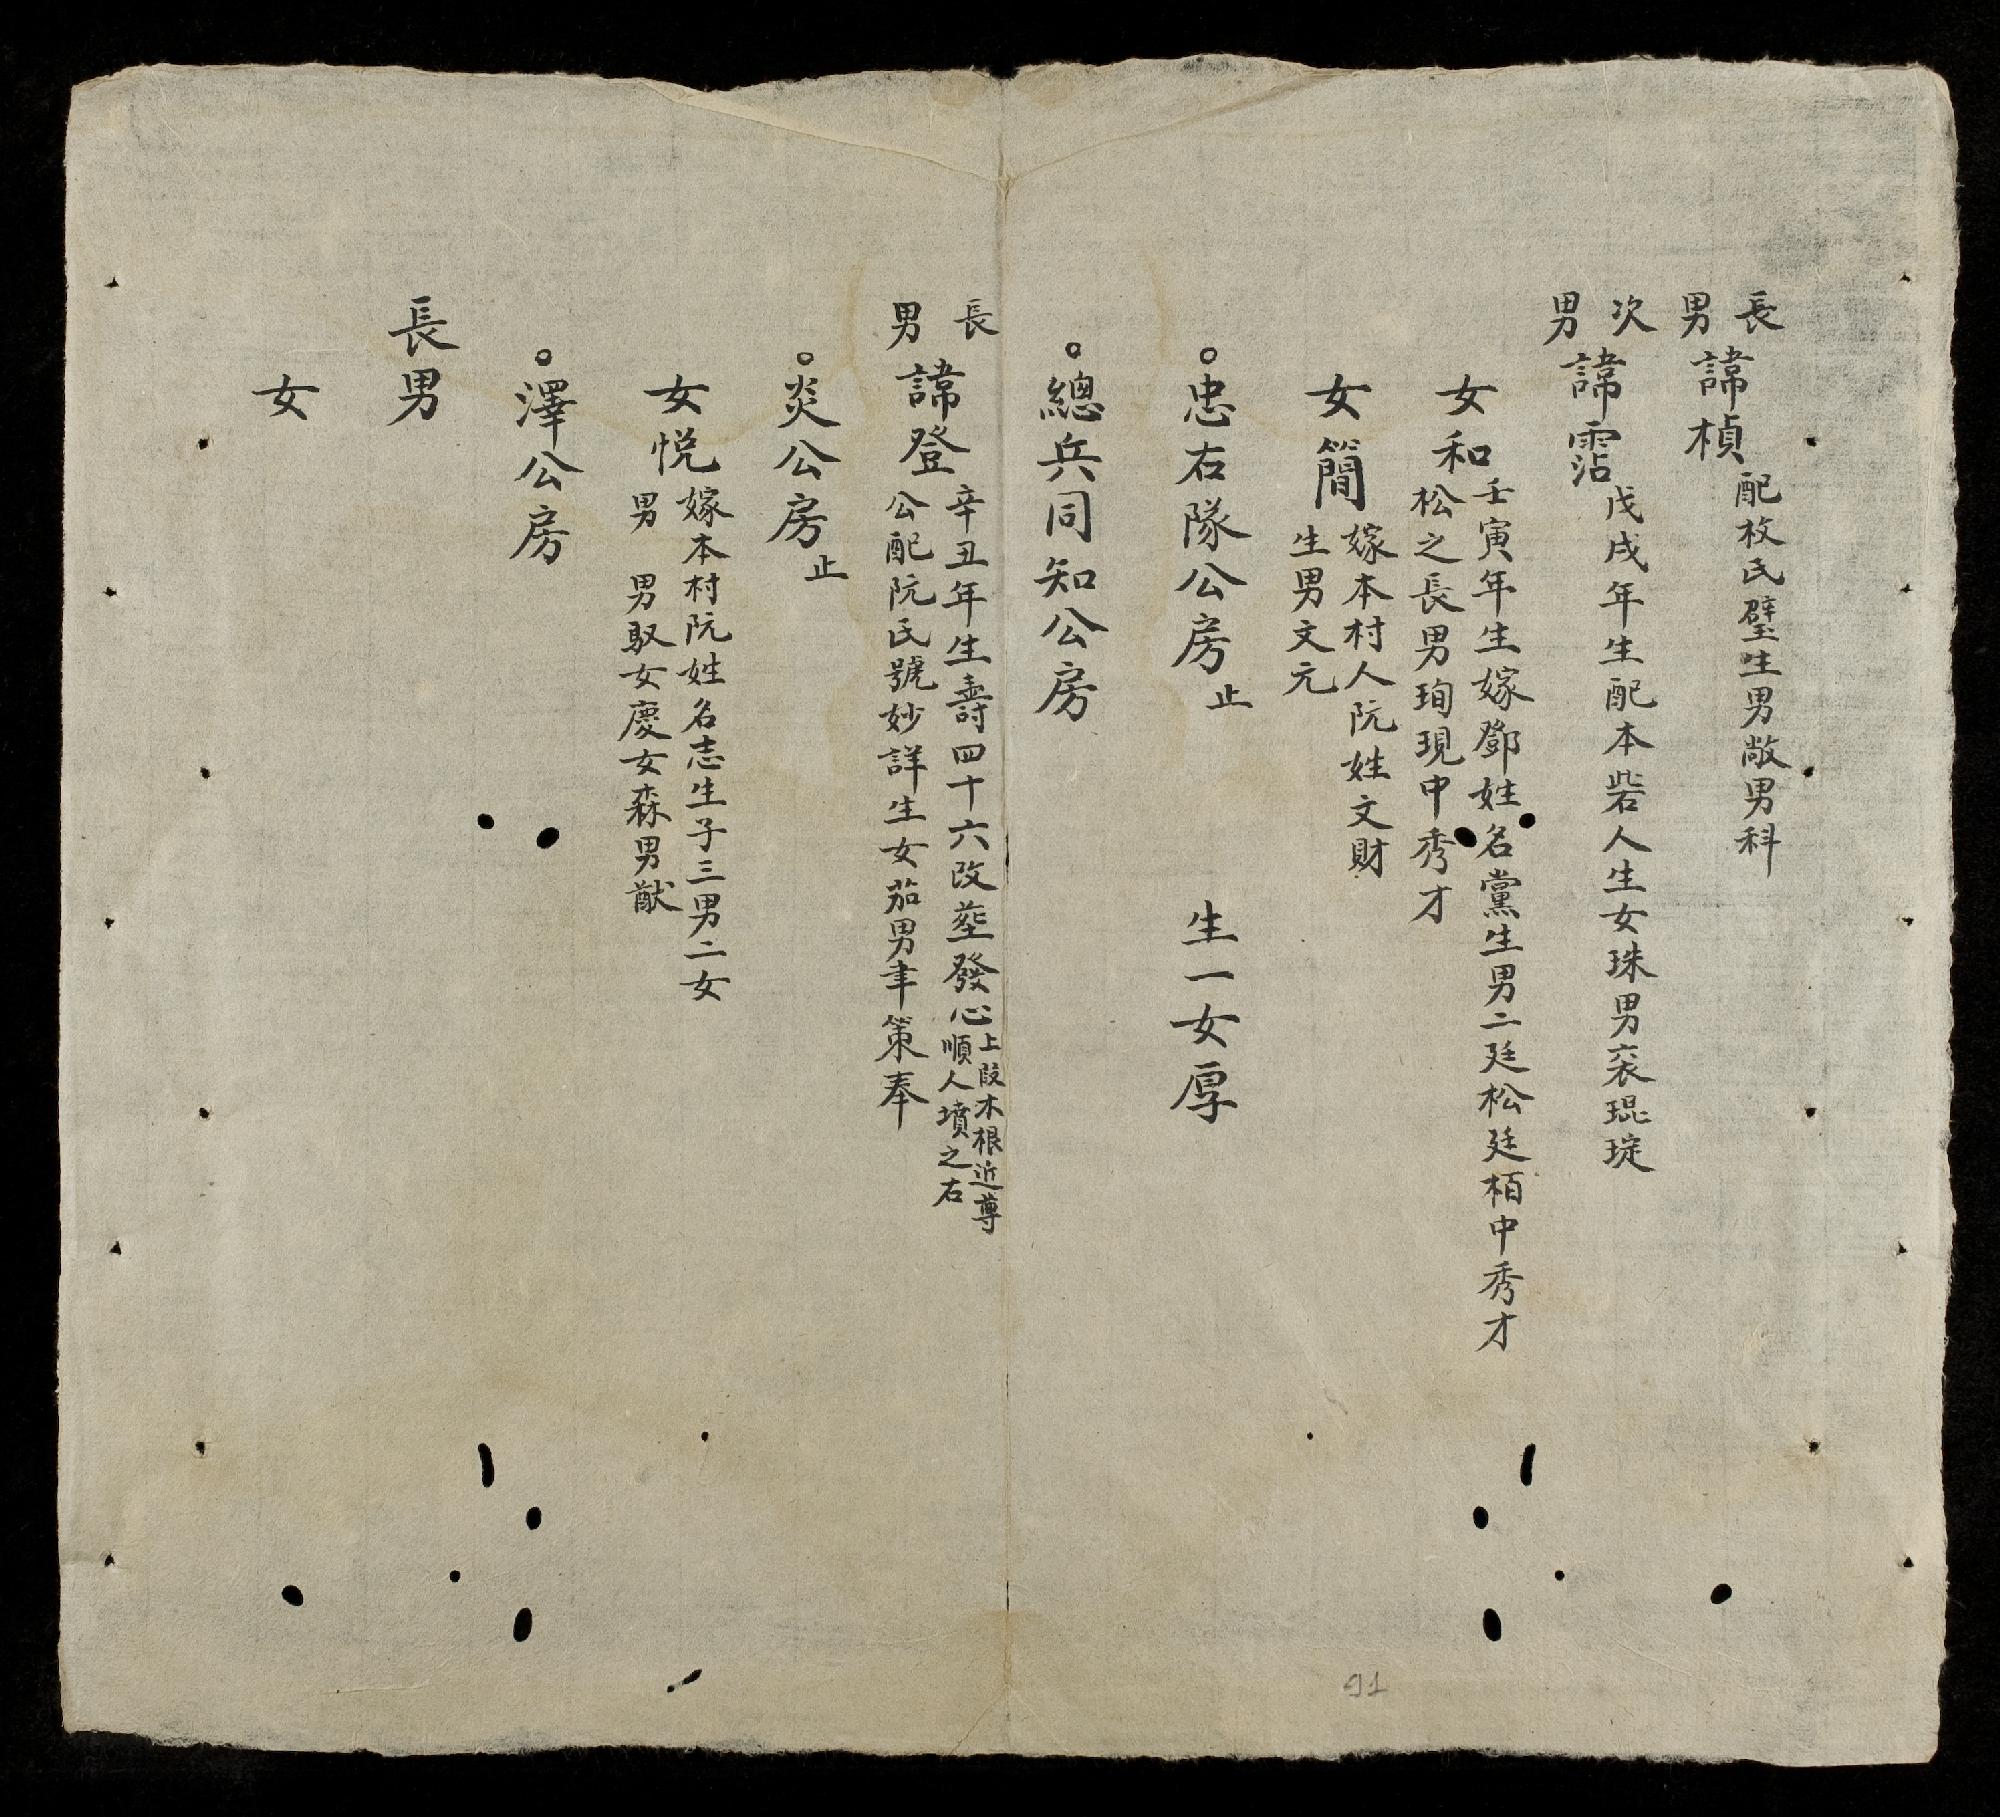 長男諱楨配枚氏璧生男敞男科
次男諱霑戊戌年生配本砦人生女珠男衮琨琔
女和壬寅年生嫁鄧姓名黨生男二廷松廷栢中秀才
松之長男珣現中秀才
女簡嫁本村人阮姓文財
生男文元
○忠右隊公房止 生一女厚
○總兵同知公房
長男諱登辛丑年生壽四十六改塟發心上段木根近尊
順人墳之右
公配阮氏號妙詳生女茄男聿策奉
○炎公房止
女悅嫁本村阮姓名志生子三男二女
男 男馭女慶女森男猷
○澤公房
長男
女
91